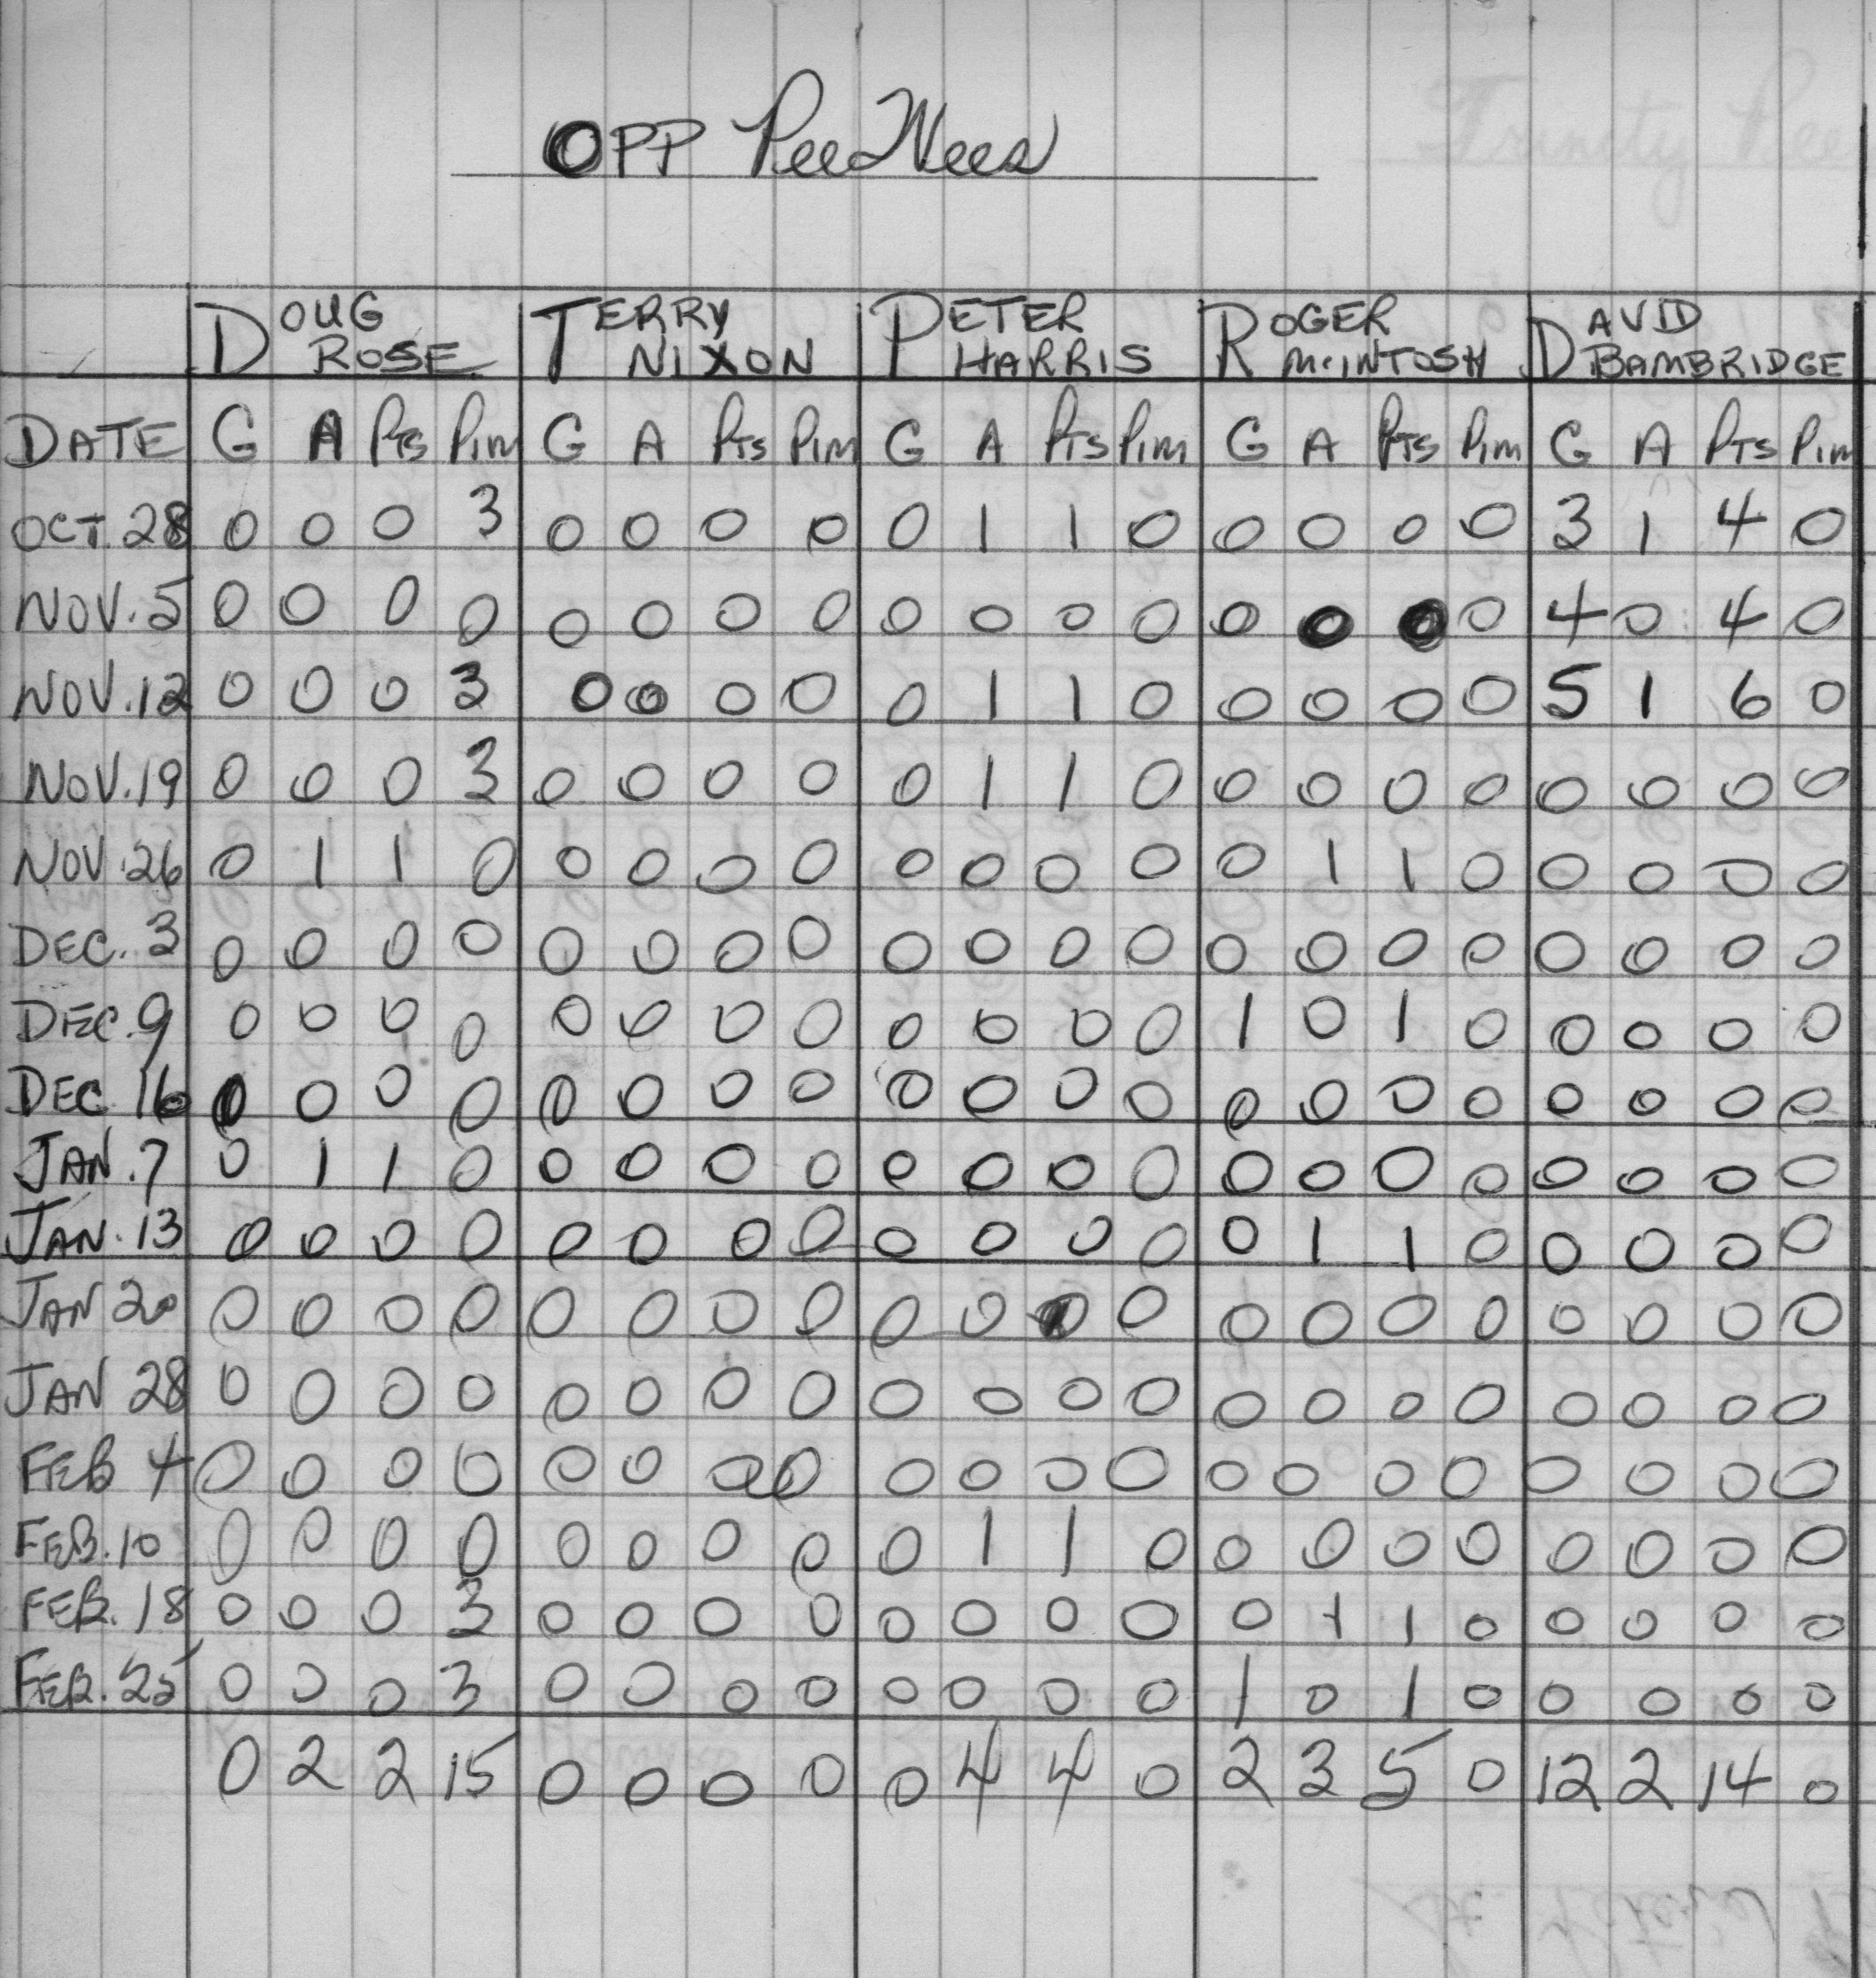 OPP PeeWees
DOUG ROSE TERRY NIXON PETER HARRIS ROGER McINTOSH DAVID BAMBRIDGE
DATE G A PTS PIM G A PTS PIM G A PTS PIM G A PTS PIM G A PTS PIM
OCT. 28 0 0 0 3 0 0 0 0 0 1 1 0 0 0 0 0 3 1 4 0
NOV. 5 0 0 0 0 0 0 0 0 0 0 0 0 0 0 0 0 4 0 4 0
NOV. 12 0 0 0 3 0 0 0 0 0 1 1 0 0 0 0 0 5 1 6 0
NOV. 19 0 0 0 3 0 0 0 0 0 1 1 0 0 0 0 0 0 0 0 0
NOV. 26 0 1 1 0 0 0 0 0 0 0 0 0 0 1 1 0 0 0 0 0
DEC. 3 0 0 0 0 0 0 0 0 0 0 0 0 0 0 0 0 0 0 0 0
DEC. 9 0 0 0 0 0 0 0 0 0 0 0 0 1 0 1 0 0 0 0 0
DEC 16 0 0 0 0 0 0 0 0 0 0 0 0 0 0 0 0 0 0 0 0
JAN. 7 0 1 1 0 0 0 0 0 0 0 0 0 0 0 0 0 0 0 0 0
JAN. 13 0 0 0 0 0 0 0 0 0 0 0 0 0 1 1 0 0 0 0 0
JAN 20 0 0 0 0 0 0 0 0 0 0 0 0 0 0 0 0 0 0 0 0
JAN 28 0 0 0 0 0 0 0 0 0 0 0 0 0 0 0 0 0 0 0 0
FEB 4 0 0 0 0 0 0 0 0 0 0 0 0 0 0 0 0 0 0 0 0
FEB. 10 0 0 0 0 0 0 0 0 0 1 1 0 0 0 0 0 0 0 0 0
FEB. 18 0 0 0 3 0 0 0 0 0 0 0 0 0 1 1 0 0 0 0 0
FEB. 25 0 0 0 3 0 0 0 0 0 0 0 0 1 0 1 0 0 0 0 0
0 2 2 15 0 0 0 0 0 4 4 0 2 3 5 0 12 2 14 0